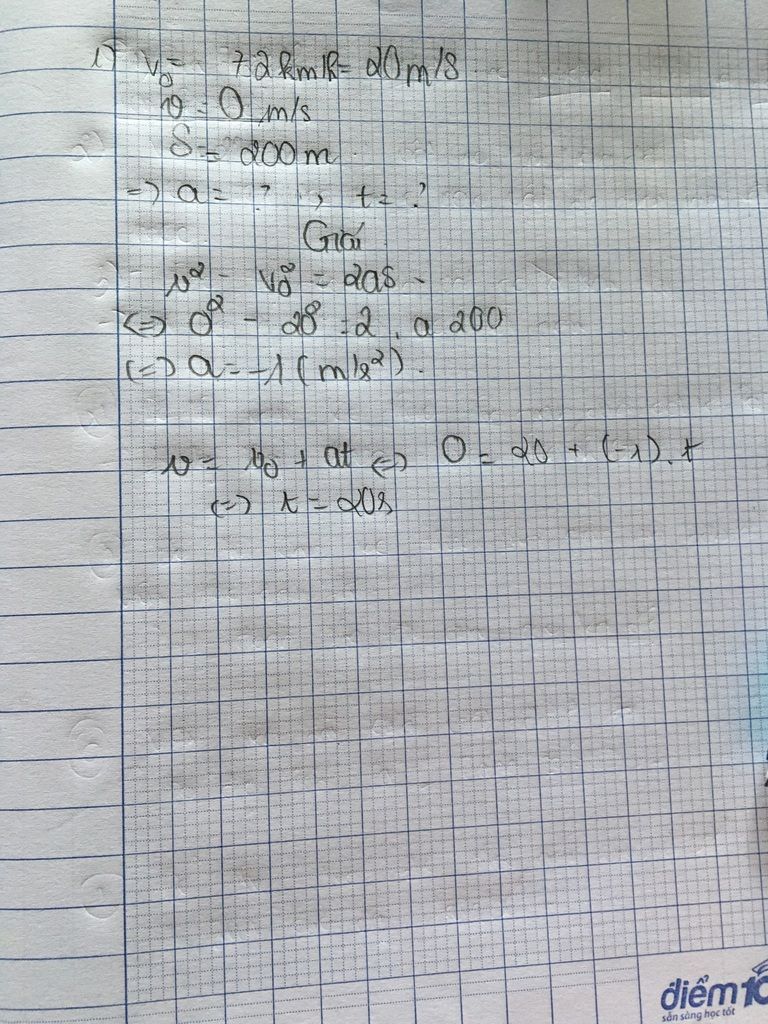 1) v₀ = 72km/h = 20m/s
v = 0 m/s
S = 200m
=> a = ? , t = ?
Giải
v² - v₀² = 2as
<=> 0² - 20² = 2 . a 200
<=> a = -1 (m/s²).
v = v₀ + at <=> 0 = 20 + (-1).t
<=> t = 20s
điểm 10
sẵn sàng học tốt